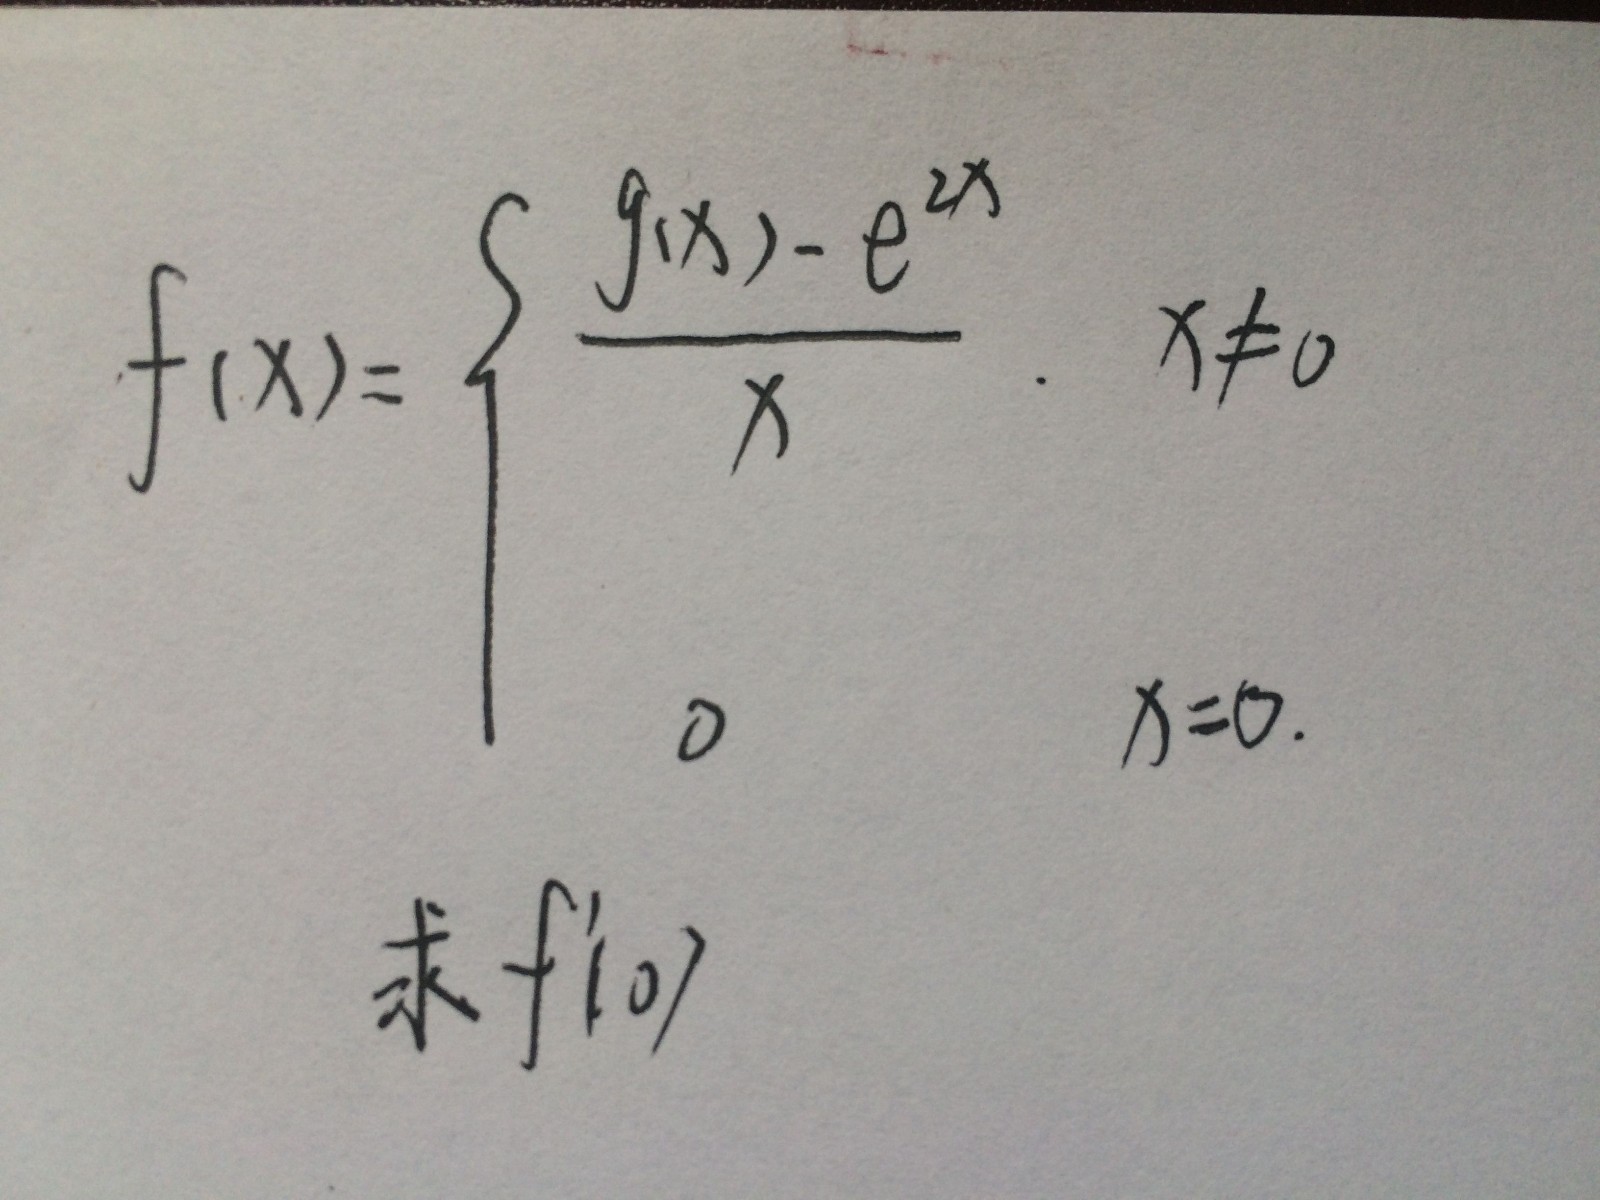 f(x)= { (g(x)-e^{2x})/x . x≠0
0 x=0.
求 f'(0)